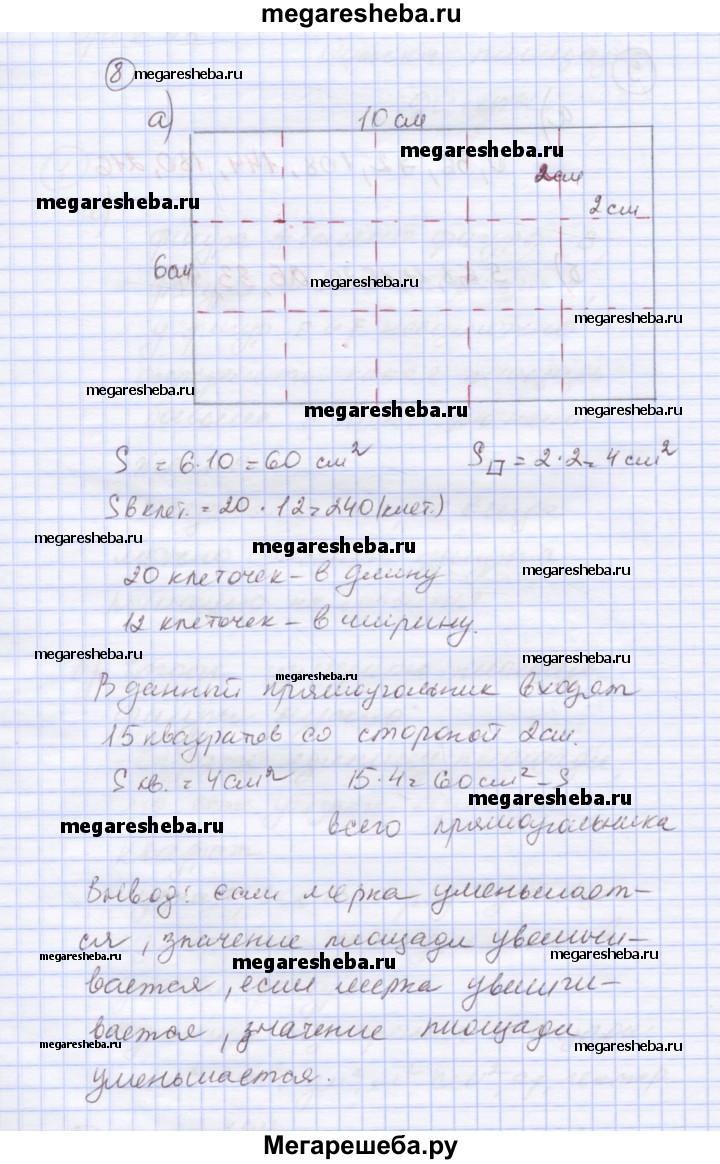 megaresheba.ru
8 megaresheba.ru
а) 10 см
megaresheba.ru
2см
megaresheba.ru
2 см
6см
megaresheba.ru
megaresheba.ru
megaresheba.ru
megaresheba.ru
megaresheba.ru
S = 6·10 = 60 см² S□ = 2·2 = 4 см²
S в клет. = 20 · 12 = 240 (клет.)
megaresheba.ru
megaresheba.ru
20 клеточек – в длину
megaresheba.ru
12 клеточек – в ширину.
megaresheba.ru
megaresheba.ru
megaresheba.ru
В данный прямоугольник входят
15 квадратов со стороной 2см.
S кв. = 4 см² 15·4 = 60 см² – S
megaresheba.ru
megaresheba.ru
всего прямоугольника
Вывод: если мерка уменьшает-
ся, значение площади увеличи-
megaresheba.ru
megaresheba.ru
megaresheba.ru
вается, если мерка увеличи-
вается, значение площади
megaresheba.ru
megaresheba.ru
уменьшается.
Мегарешеба.ру